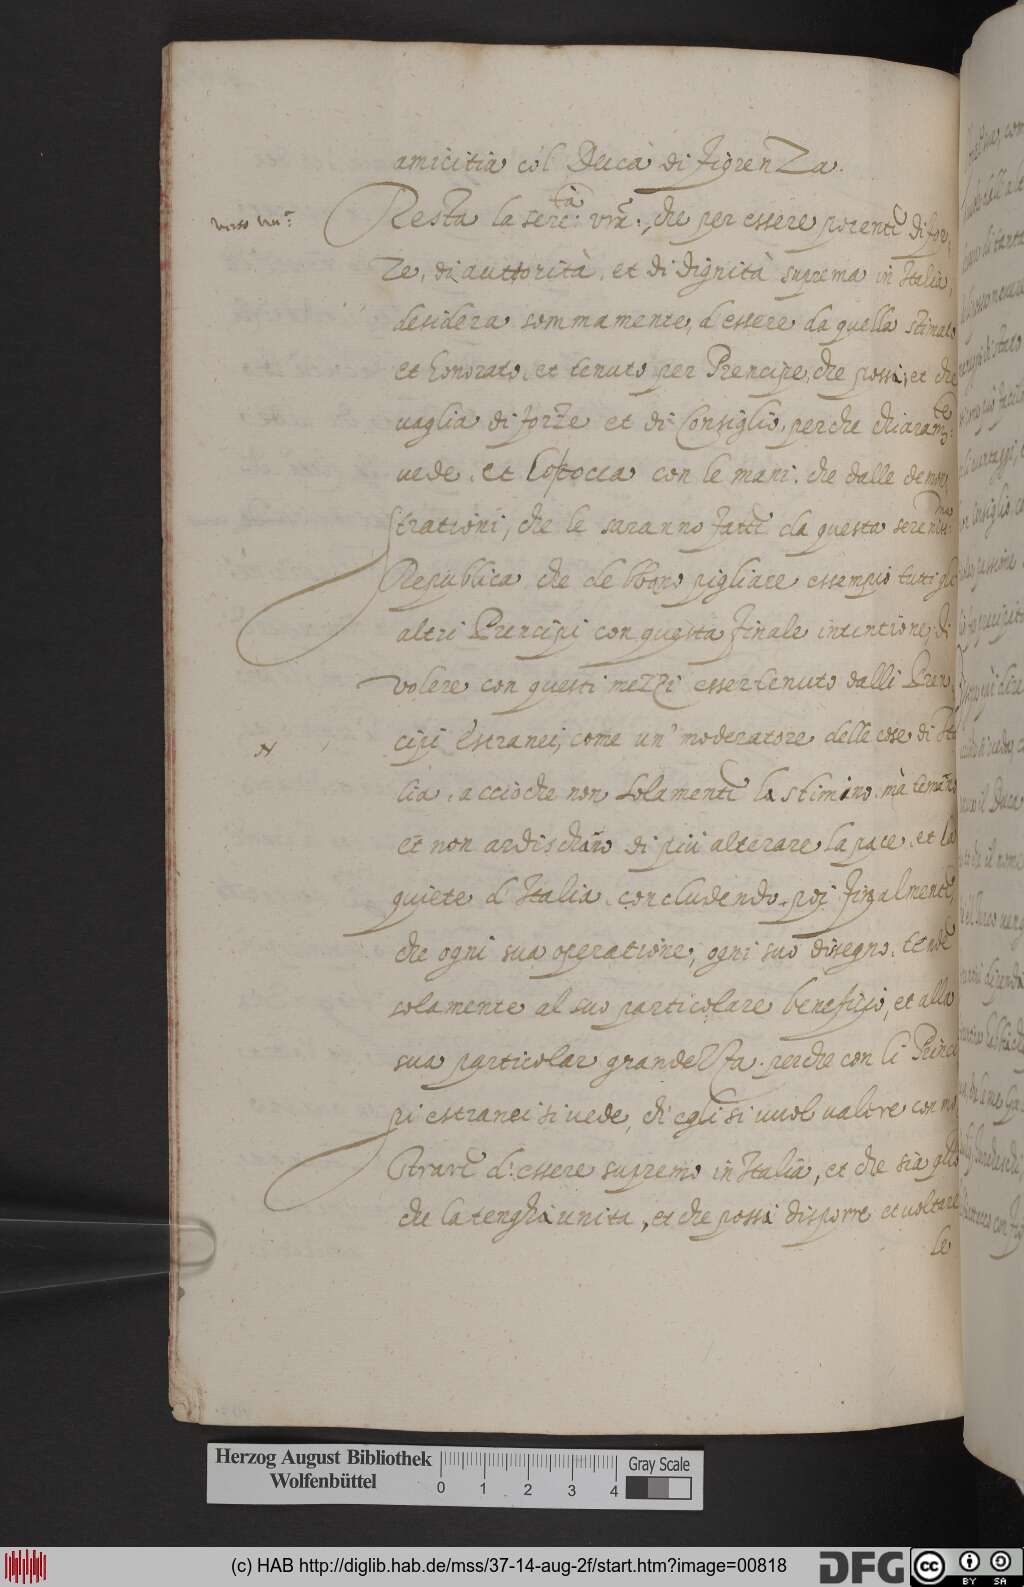 amicitia col Duca di Fiorenza.
verso Ven.
Resta la ser.tà vra:, che per essere potente di for,
ze, di auttorità, et di dignità suprema in Italia,
desidera sommamente, d'essere da quella stimato
et honorato, et tenuto per Prencipe, che possi, et che
vaglia di forze et di Consiglio, perche chiaram.te
vede, et lo tocca con le mani, che dalle demon,
strationi, che le saranno fatte da questa seren.ma
Republica, che debbono pigliare essempio tutti gli
altri Prencipi con questa finale intentione, di
volere con questi mezzi esser tenuto dalli Pren,
cipi Estranei, come un' moderatore delle cose di Ita
lia, accioche non solamente la stimino, mà temano
et non ardischino di più alterare la pace, et la
quiete d'Italia, concludendo poi finalmente,
che ogni sua operatione, ogni suo disegno, tende
solamente al suo particolare beneficio, et alla
sua particolar grandezza, perche con li Princi
pi estranei si vede, ch'egli si vuol valere con mo,
strare d'essere supremo in Italia, et che sia quello
che la tenghi unita, et che possi disporre et voltare
le
Herzog August Bibliothek
Wolfenbüttel
0 1 2 3 4
Gray Scale
(c) HAB http://diglib.hab.de/mss/37-14-aug-2f/start.htm?image=00818
DFG
cc BY SA